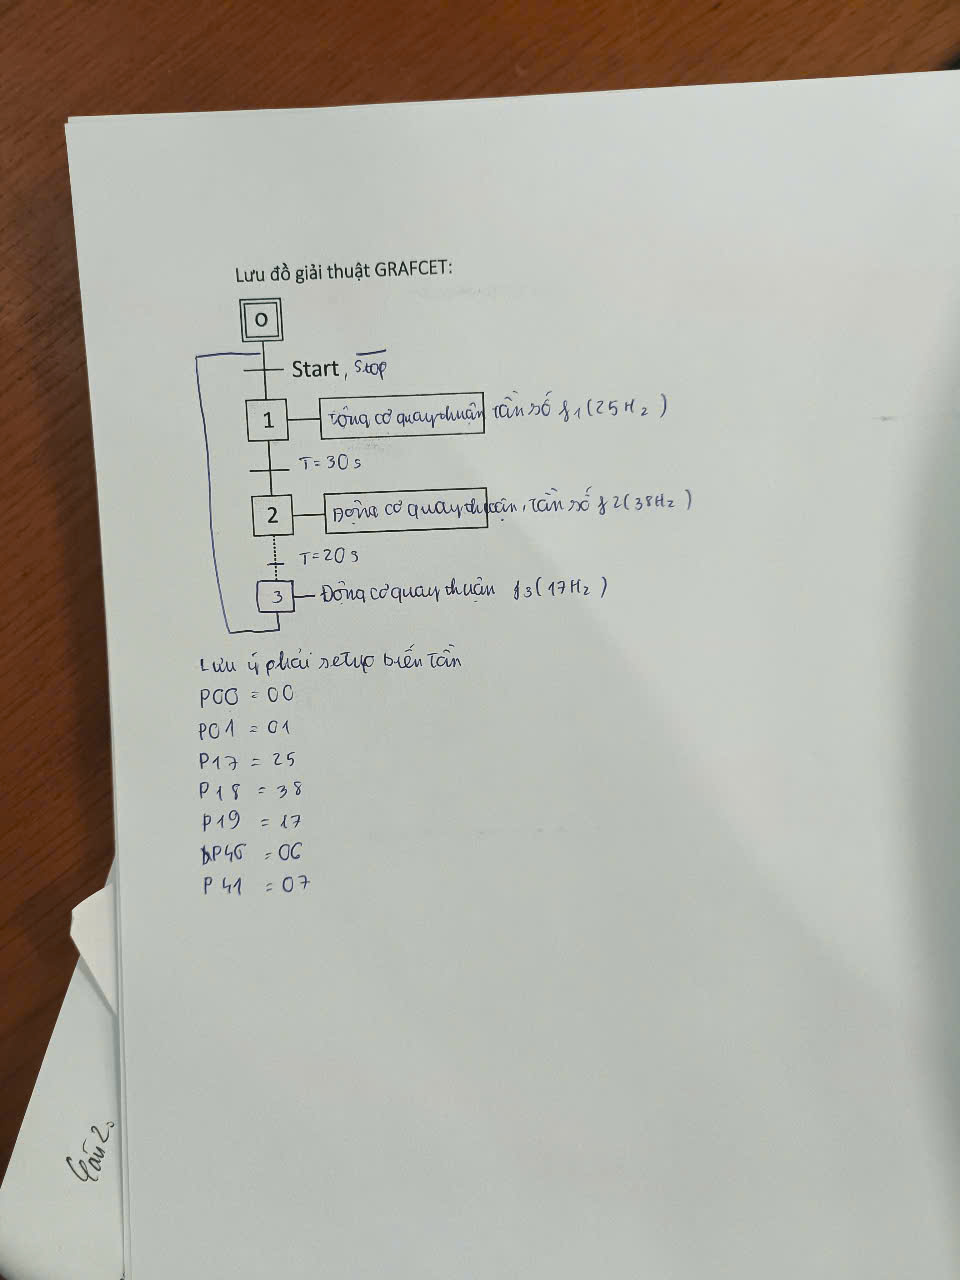 Lưu đồ giải thuật GRAFCET:
0
Start, Stop
1 Động cơ quay thuận tần số f1 (25Hz)
T=30s
2 Động cơ quay thuận, tần số f2 (38Hz)
T=20s
3 Động cơ quay thuận f3 (17Hz)
Lưu ý phải setup biến tần
P00 = 00
P01 = 01
P17 = 25
P18 = 38
P19 = 17
= 06
P41 = 07
Câu 2.